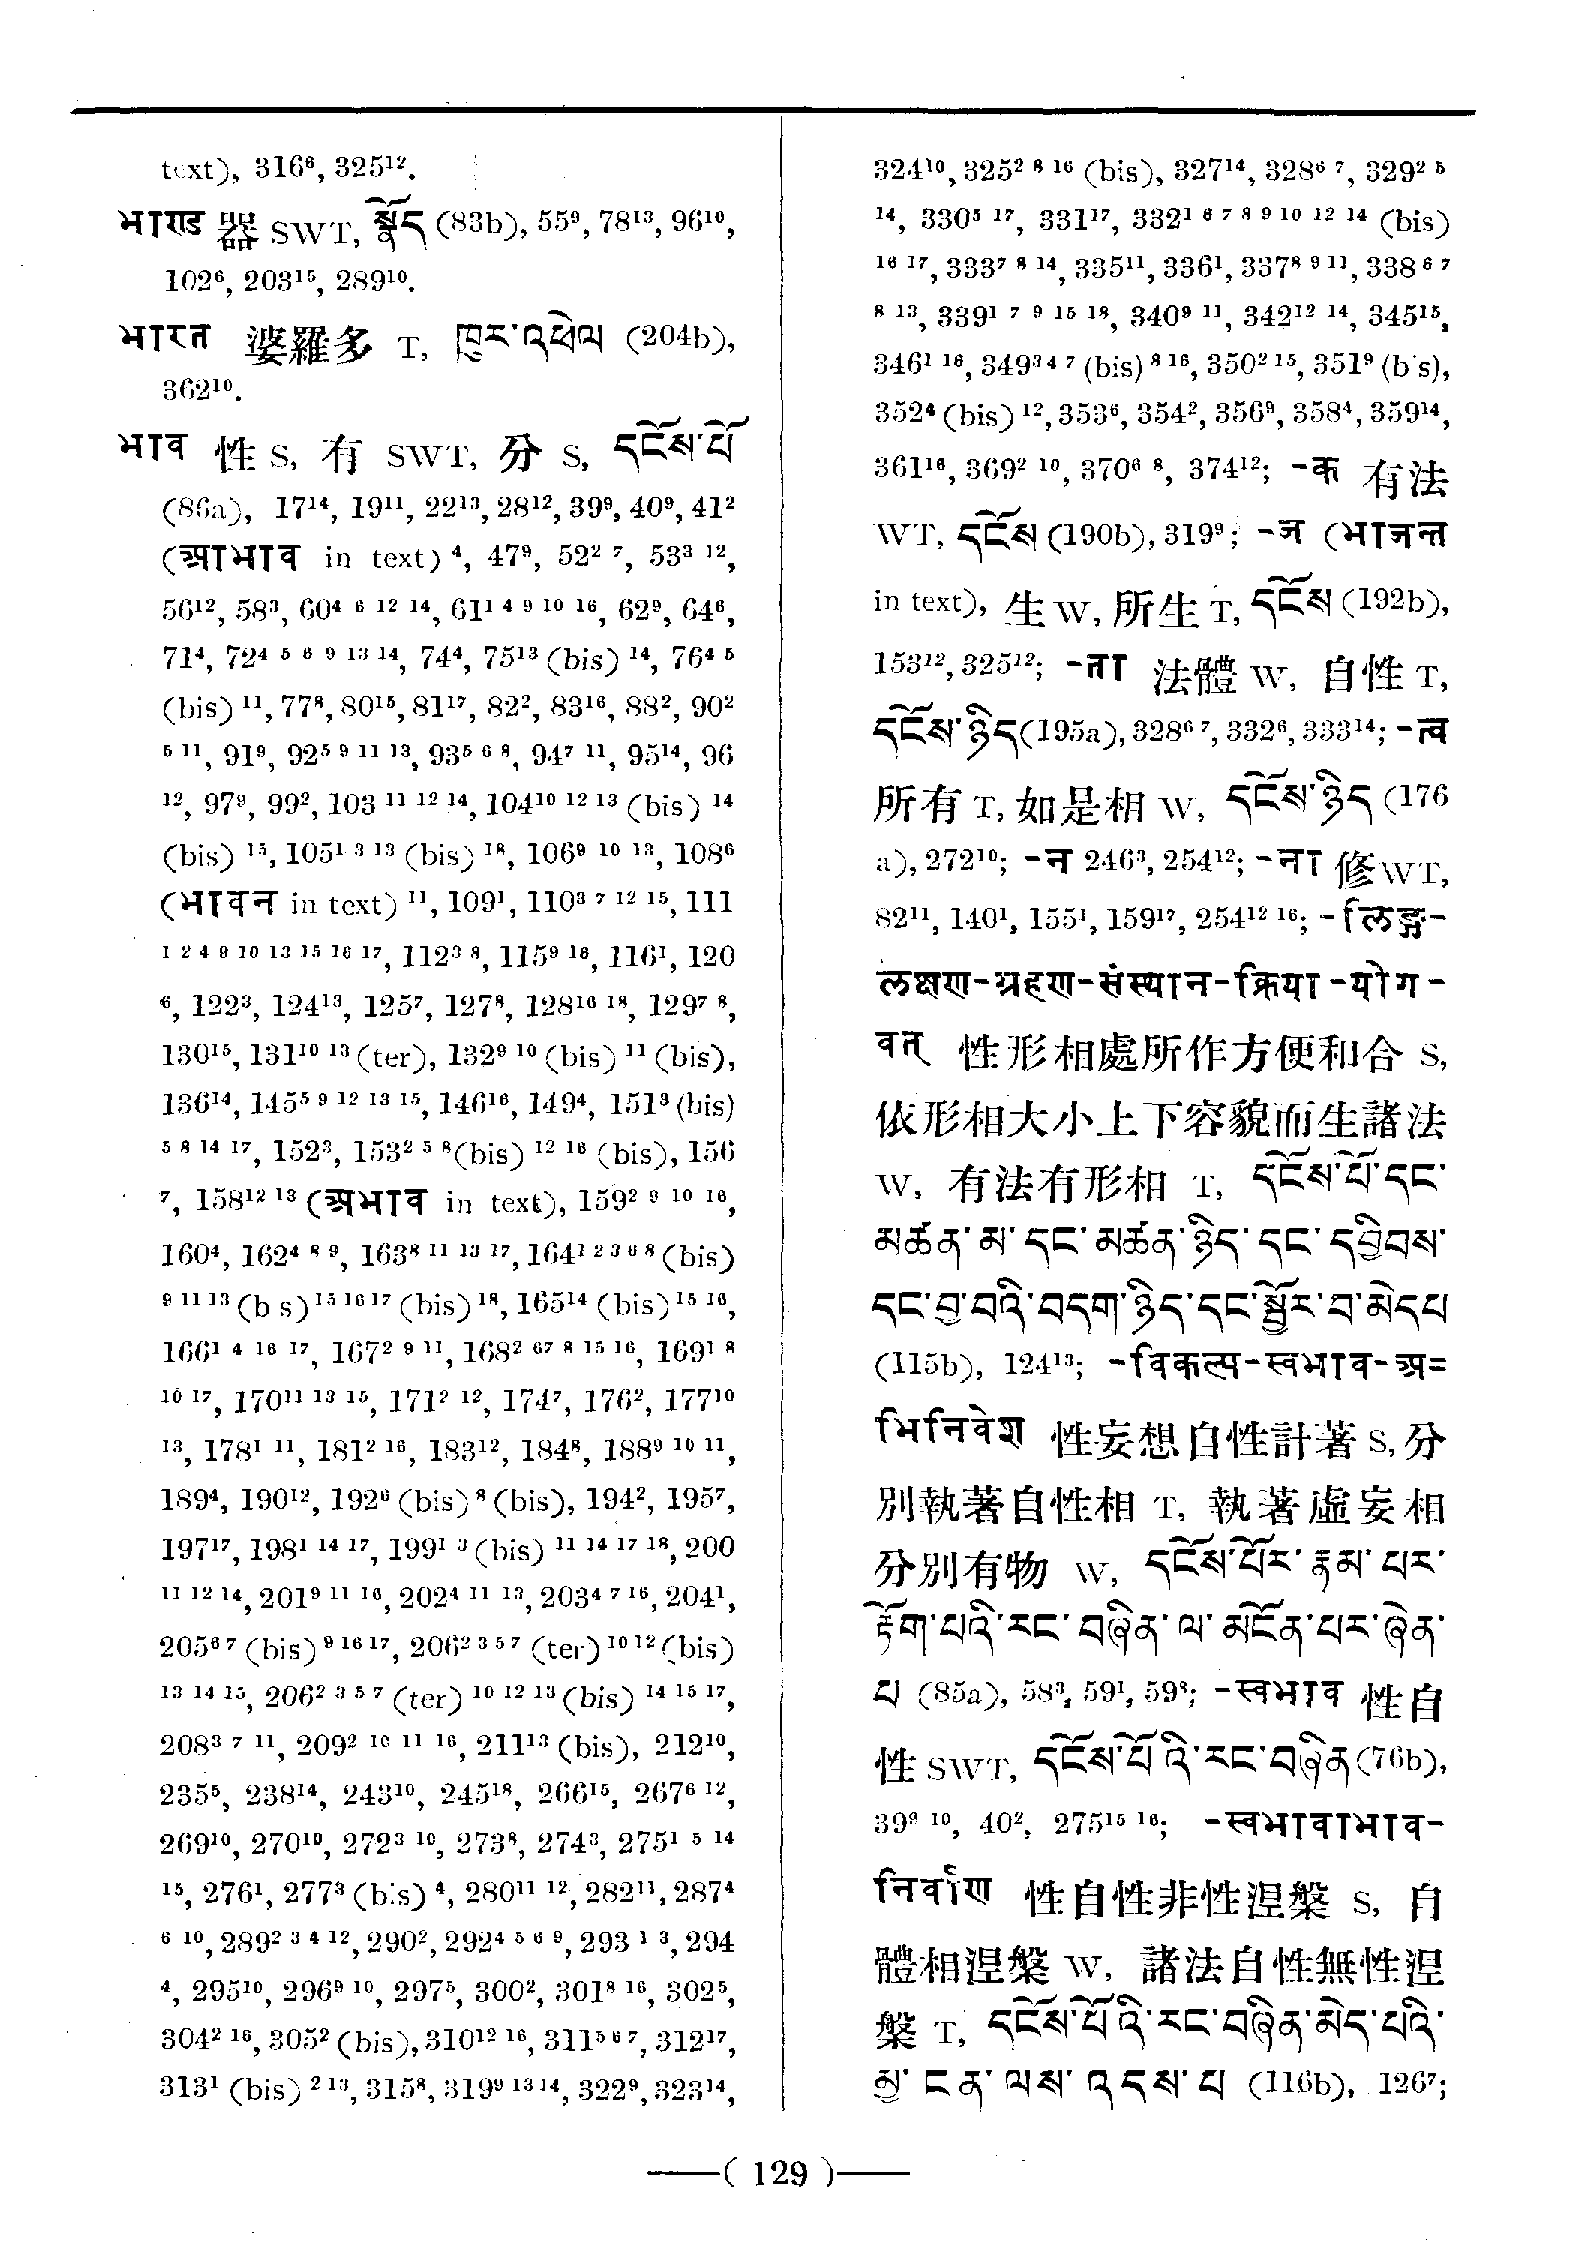 text), 316⁶, 325¹².
भाण्ड 器 SWT, སྣོད (83b), 55⁹, 78¹³, 96¹⁰,
102⁶, 203¹⁵, 289¹⁰.
भारत 婆羅多 T, ཁུར་འཕེལ (204b),
362¹⁰.
भाव 性 S, 有 SWT, 分 S, དངོས་པོ
(86a), 17¹⁴, 19¹¹, 22¹³, 28¹², 39⁹, 40⁹, 41²
(आभाव in text) ⁴, 47⁹, 52² ⁷, 53³ ¹²,
56¹², 58³, 60⁴ ⁶ ¹² ¹⁴, 61¹ ⁴ ⁹ ¹⁰ ¹⁶, 62⁹, 64⁶,
71⁴, 72⁴ ⁵ ⁶ ⁹ ¹³ ¹⁴, 74⁴, 75¹³ (bis) ¹⁴, 76⁴ ⁵
(bis) ¹¹, 77⁸, 80¹⁵, 81¹⁷, 82², 83¹⁶, 88², 90²
⁵ ¹¹, 91⁹, 92⁵ ⁹ ¹¹ ¹³, 93⁵ ⁶ ⁸, 94⁷ ¹¹, 95¹⁴, 96
¹², 97⁹, 99², 103 ¹¹ ¹² ¹⁴, 104¹⁰ ¹² ¹³ (bis) ¹⁴
(bis) ¹⁵, 105¹ ³ ¹³ (bis) ¹⁸, 106⁹ ¹⁰ ¹³, 108⁶
(भावन in text) ¹¹, 109¹, 110³ ⁷ ¹² ¹⁵, 111
¹ ² ⁴ ⁹ ¹⁰ ¹³ ¹⁵ ¹⁶ ¹⁷, 112³ ⁸, 115⁹ ¹⁶, 116¹, 120
⁶, 122³, 124¹³, 125⁷, 127⁸, 128¹⁶ ¹⁸, 129⁷ ⁸,
130¹⁵, 131¹⁰ ¹³ (ter), 132⁹ ¹⁰ (bis) ¹¹ (bis),
136¹⁴, 145⁵ ⁹ ¹² ¹³ ¹⁵, 146¹⁶, 149⁴, 151³ (bis)
⁵ ⁸ ¹⁴ ¹⁷, 152³, 153² ⁵ ⁸ (bis) ¹² ¹⁶ (bis), 156
⁷, 158¹² ¹³ (अभाव in text), 159² ⁹ ¹⁰ ¹⁶,
160⁴, 162⁴ ⁸ ⁹, 163⁸ ¹¹ ¹³ ¹⁷, 164¹ ² ³ ⁶ ⁸ (bis)
⁹ ¹¹ ¹³ (b s) ¹⁵ ¹⁶ ¹⁷ (bis) ¹⁸, 165¹⁴ (bis) ¹⁵ ¹⁶,
166¹ ⁴ ¹⁶ ¹⁷, 167² ⁹ ¹¹, 168² ⁶⁷ ⁸ ¹⁵ ¹⁶, 169¹ ⁸
¹⁰ ¹⁷, 170¹¹ ¹³ ¹⁵, 171² ¹², 174⁷, 176², 177¹⁰
¹³, 178¹ ¹¹, 181² ¹⁶, 183¹², 184⁸, 188⁹ ¹⁰ ¹¹,
189⁴, 190¹², 192⁶ (bis) ⁸ (bis), 194², 195⁷,
197¹⁷, 198¹ ¹⁴ ¹⁷, 199¹ ³ (bis) ¹¹ ¹⁴ ¹⁷ ¹⁸, 200
¹¹ ¹² ¹⁴, 201⁹ ¹¹ ¹⁶, 202⁴ ¹¹ ¹³, 203⁴ ⁷ ¹⁶, 204¹,
205⁶ ⁷ (bis) ⁹ ¹⁶ ¹⁷, 206² ³ ⁵ ⁷ (ter) ¹⁰ ¹² (bis)
¹³ ¹⁴ ¹⁵, 206² ³ ⁵ ⁷ (ter) ¹⁰ ¹² ¹³ (bis) ¹⁴ ¹⁵ ¹⁷,
208³ ⁷ ¹¹, 209² ¹⁰ ¹¹ ¹⁶, 211¹³ (bis), 212¹⁰,
235⁵, 238¹⁴, 243¹⁰, 245¹⁸, 266¹⁵, 267⁶ ¹²,
269¹⁰, 270¹⁰, 272³ ¹⁰, 273⁸, 274³, 275¹ ⁵ ¹⁴
¹⁵, 276¹, 277³ (bis) ⁴, 280¹¹ ¹², 282¹¹, 287⁴
⁶ ¹⁰, 289² ³ ⁴ ¹², 290², 292⁴ ⁵ ⁶ ⁹, 293 ¹ ³, 294
⁴, 295¹⁰, 296⁹ ¹⁰, 297⁵, 300², 301⁸ ¹⁶, 302⁵,
304² ¹⁶, 305² (bis), 310¹² ¹⁶, 311⁵ ⁶ ⁷, 312¹⁷,
313¹ (bis) ² ¹³, 315⁸, 319⁹ ¹³ ¹⁴, 322⁹, 323¹⁴,
324¹⁰, 325² ⁸ ¹⁶ (bis), 327¹⁴, 328⁶ ⁷, 329² ⁵
¹⁴, 330⁵ ¹⁷, 331¹⁷, 332¹ ⁶ ⁷ ⁸ ⁹ ¹⁰ ¹² ¹⁴ (bis)
¹⁶ ¹⁷, 333⁷ ⁸ ¹⁴, 335¹¹, 336¹, 337⁸ ⁹ ¹¹, 338 ⁶ ⁷
⁸ ¹³, 339¹ ⁷ ⁹ ¹⁵ ¹⁸, 340⁹ ¹¹, 342¹² ¹⁴, 345¹⁵,
346¹ ¹⁶, 349³ ⁴ ⁷ (bis) ⁸ ¹⁶, 350² ¹⁵, 351⁹ (b's),
352⁴ (bis) ¹², 353⁶, 354², 356⁹, 358⁴, 359¹⁴,
361¹⁶, 369² ¹⁰, 370⁶ ⁸, 374¹²; -क 有法
WT, དངོས (190b), 319⁹; -ज (भाजन्त
in text), 生 W, 所生 T, དངོས (192b),
153¹², 325¹²; -ता 法體 W, 自性 T,
དངོས་ཉིད (195a), 328⁶ ⁷, 332⁶, 333¹⁴; -त्व
所有 T, 如是相 W, དངོས་ཉིད (176
a), 272¹⁰; -न 246³, 254¹²; -ना 修 WT,
82¹¹, 140¹, 155¹, 159¹⁷, 254¹² ¹⁶; -लिङ्ग-
लक्षण-ग्रहण-संस्थान-क्रिया-योग-
वत् 性形相處所作方便和合 S,
依形相大小上下容貌而生諸法
W, 有法有形相 T, དངོས་པོ་དང་
མཚན་མ་དང་མཚན་ཉིད་དང་དབྱིབས་
དང་བྱ་བའི་བདག་ཉིད་དང་སྦྱོར་བ་མེདཔ
(115b), 124¹³; -विकल्प-स्वभाव-अ=
भिनिवेश 性妄想自性計著 S, 分
別執著自性相 T, 執著虛妄相
分別有物 W, དངོས་པོར་རྣམ་པར་
རྟོག་པའི་རང་བཞིན་ལ་མངོན་པར་ཞེན་
པ (85a), 58³, 59¹, 59⁸; -स्वभाव 性自
性 SWT, དངོས་པོའི་རང་བཞིན (76b),
39⁹ ¹⁰, 40², 275¹⁵ ¹⁶; -स्वभावाभाव-
निर्वाण 性自性非性涅槃 S, 自
體相涅槃 W, 諸法自性無性涅
槃 T, དངོས་པོའི་རང་བཞིན་མེད་པའི་
མྱ་ངན་ལས་འདས་པ (116b), 126⁷;
—( 129 )—